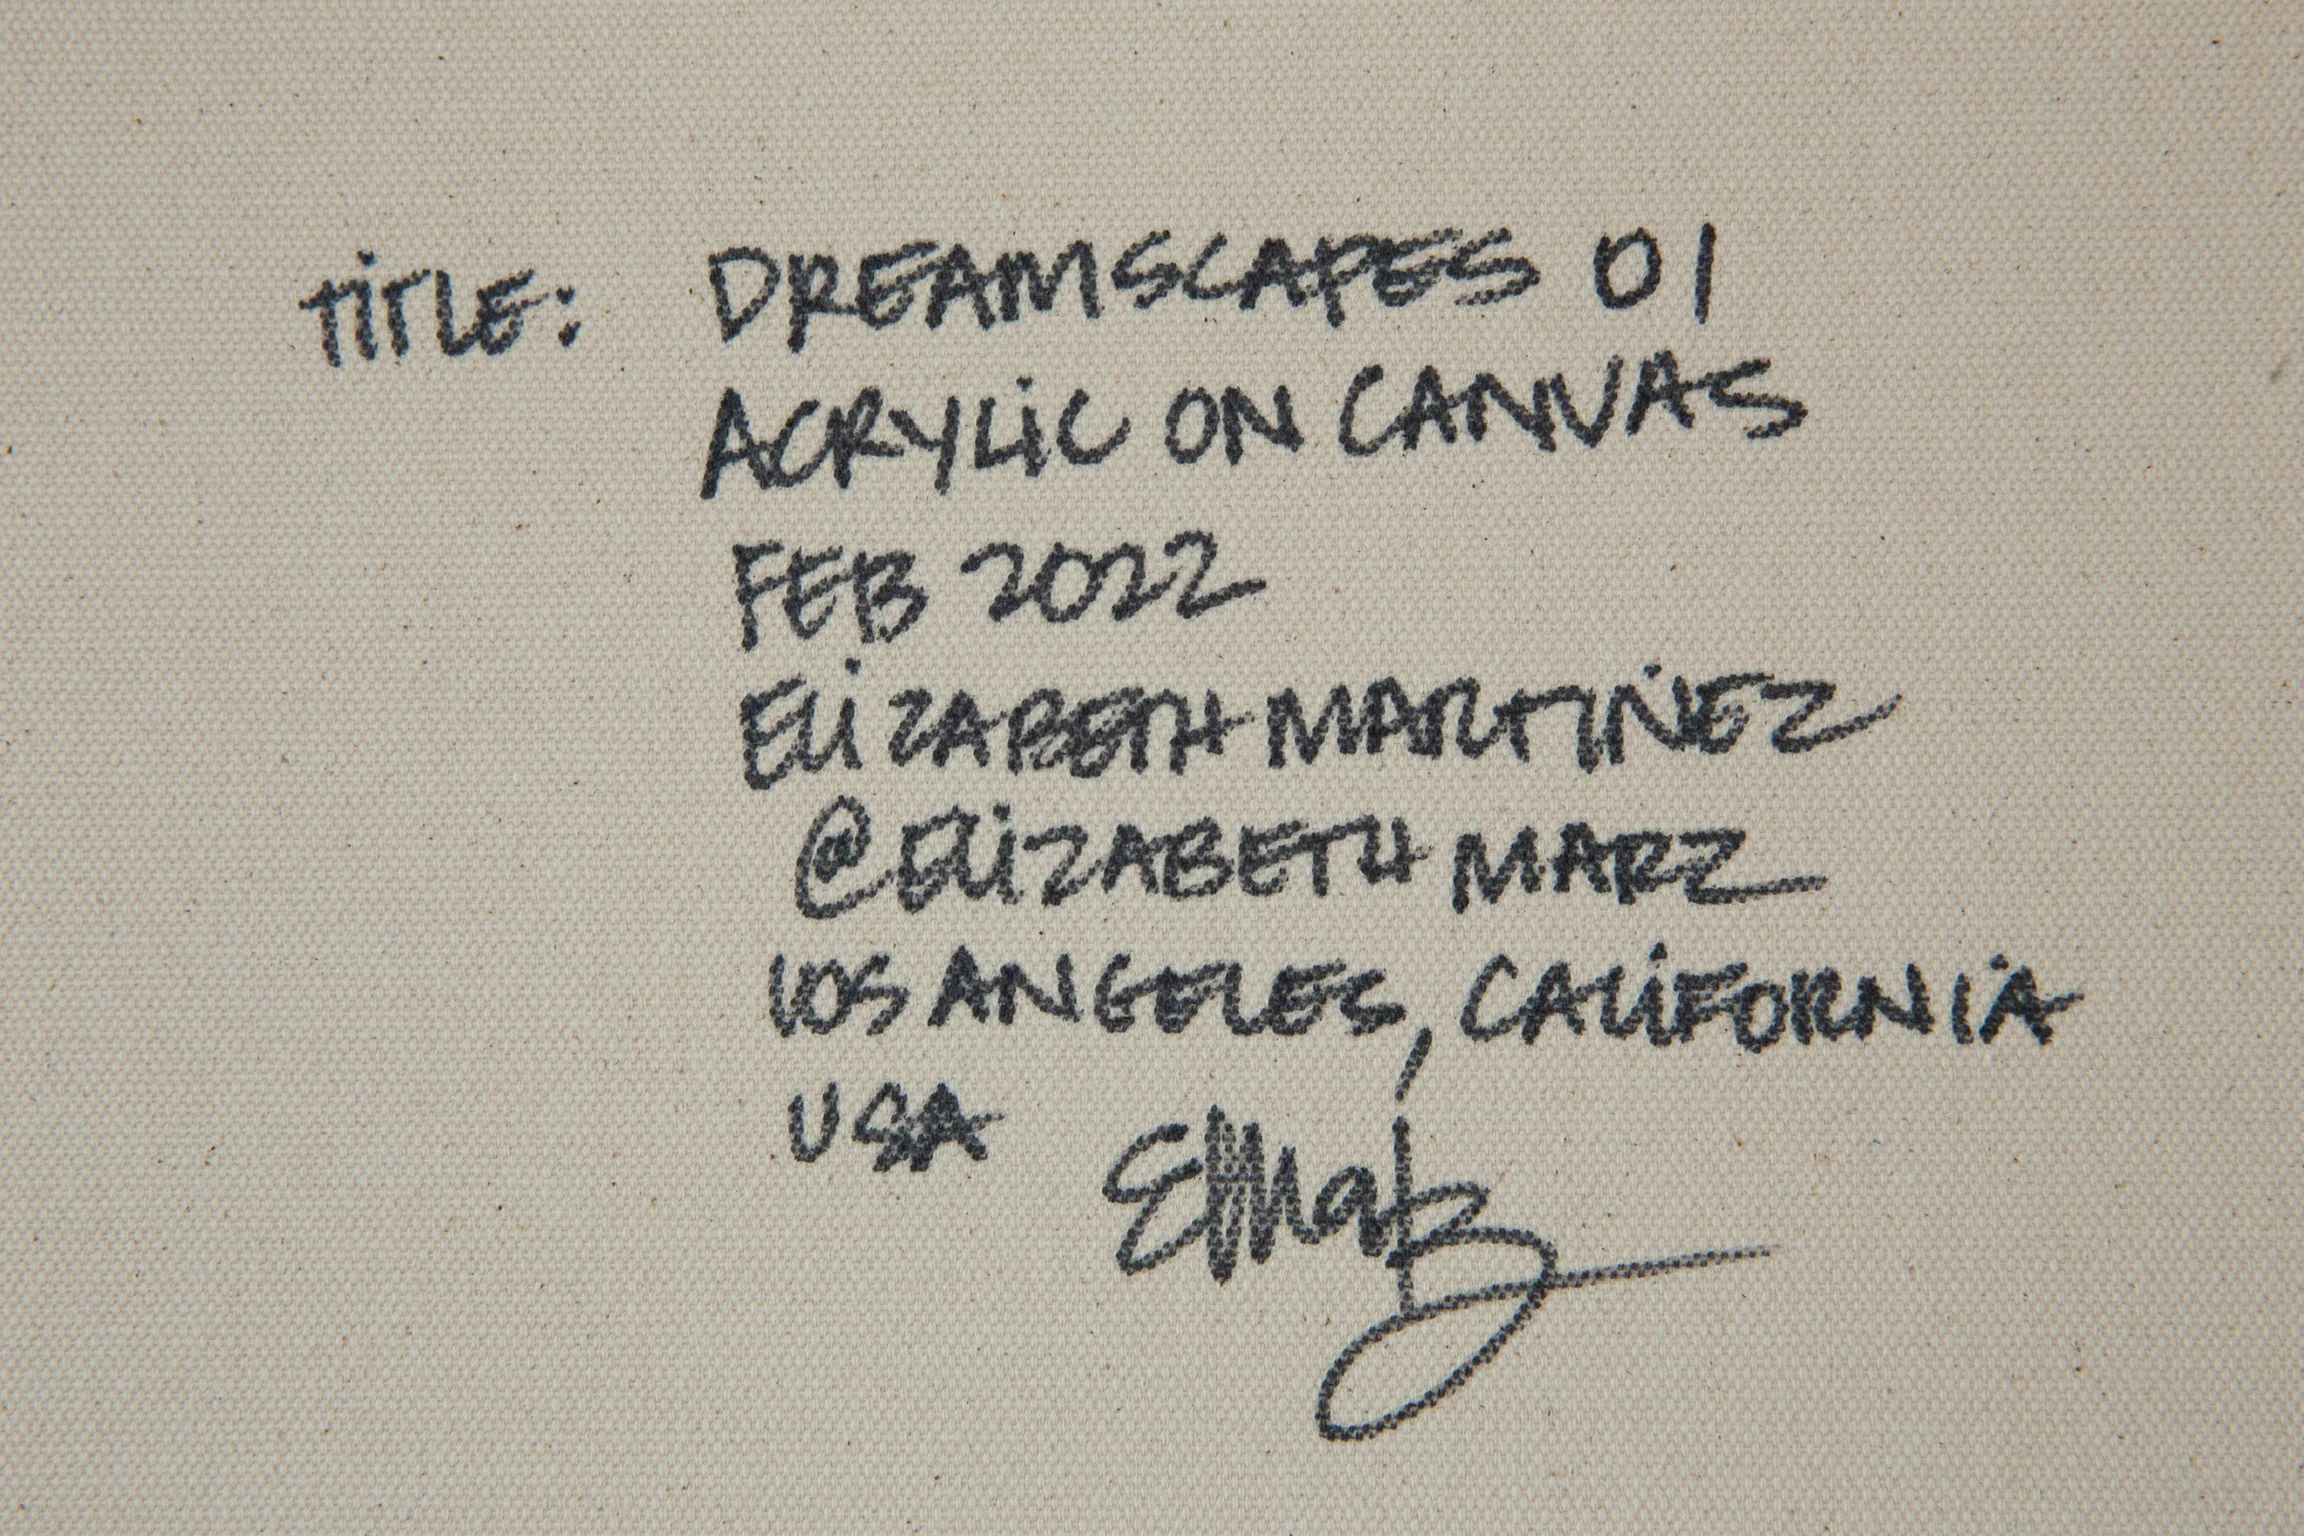 TITLE: DREAMSCAPES 01
ACRYLIC ON CANVAS
FEB 2022
ELIZABETH MARTINEZ
@ELIZABETHMARZ
LOS ANGELES, CALIFORNIA
USA